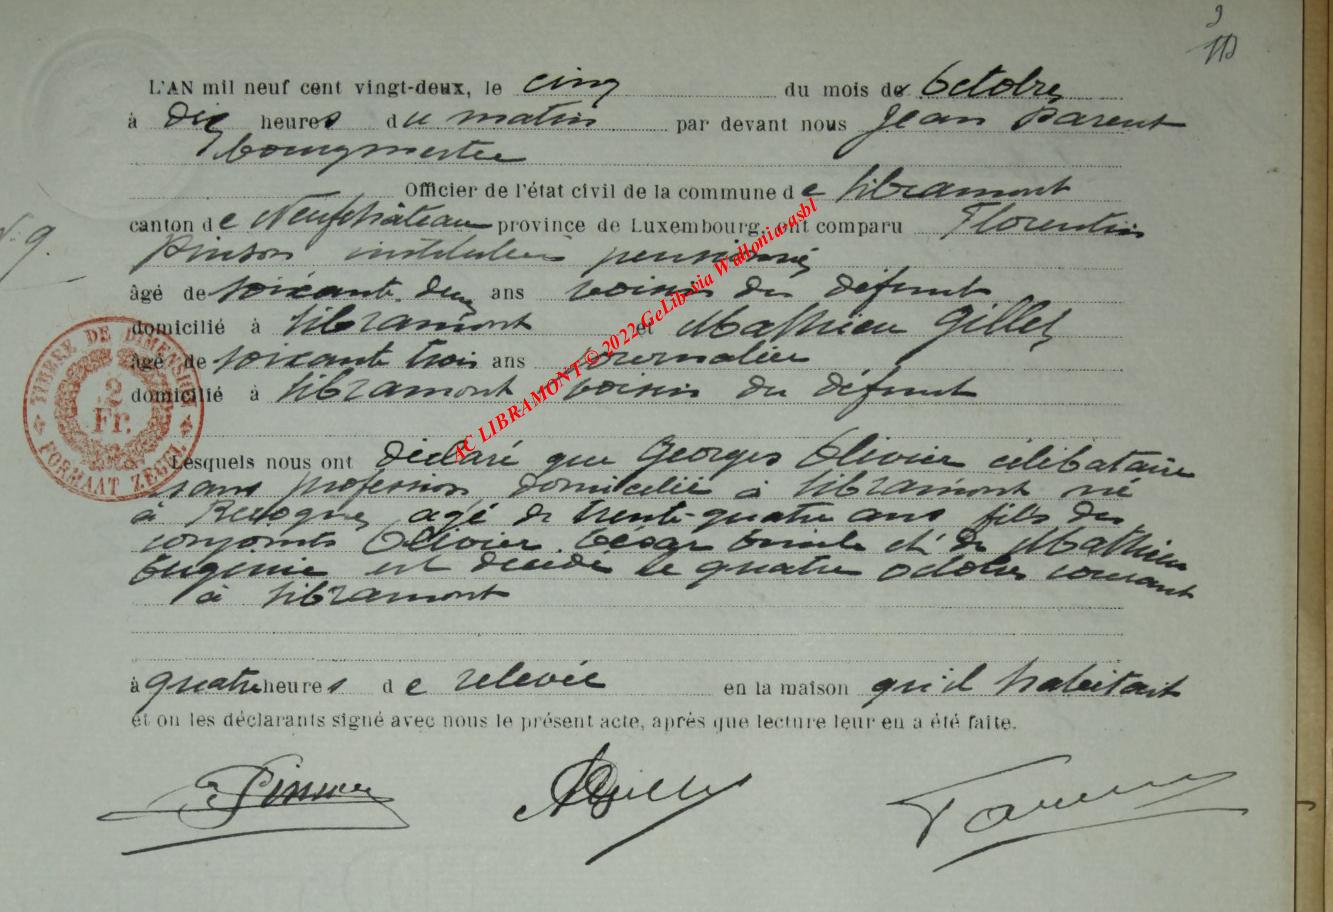 9
L'AN mil neuf cent vingt-deux, le cinq du mois de Octobre
à dix heures du matin par devant nous Jean Parent
bourgmestre
Officier de l'état civil de la commune de Libramont
canton de Neufchâteau province de Luxembourg, ont comparu Florentin
N° 9.
Pinson instituteur pensionné
âgé de soixante-deux ans voisin du défunt
domicilié à Libramont et Mathieu Gillet
âgé de soixante trois ans journalier
domicilié à Libramont voisin du défunt
TIMBRE DE DIMENSION
2
Fr.
FORMAAT ZEGEL
AC LIBRAMONT © 2022 GeLib via Wallonia-asbl
Lesquels nous ont déclaré que Georges Olivier célibataire
sans profession domicilié à Libramont né
à Redogne agé de trente-quatre ans fils des
conjoints Olivier César Emile et de Mathieu
Eugénie est décédé le quatre octobre courant
à Libramont
à quatre heures de relevée en la maison qu'il habitait
et on les déclarants signé avec nous le présent acte, après que lecture leur en a été faite.
F Pinson Gillet Parent